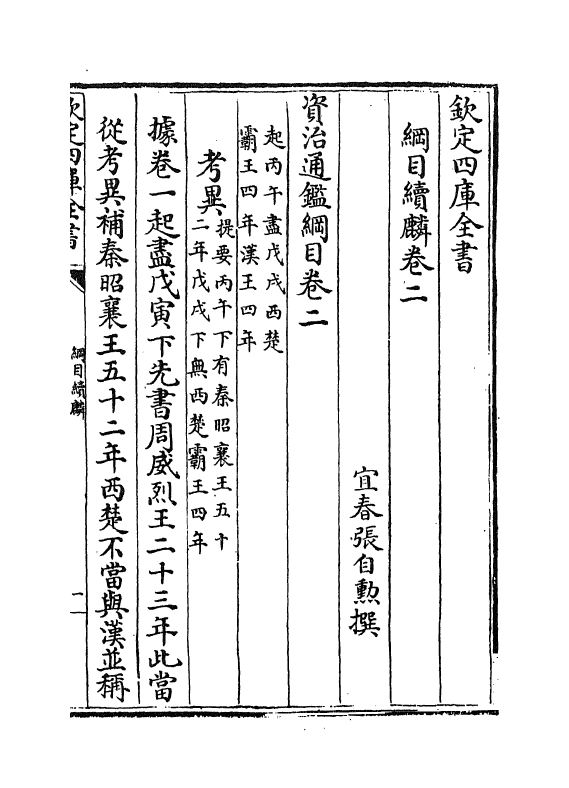 欽定四庫全書
綱目續麟卷二
宜春張自勲撰
資治通鑑綱目卷二
起丙午盡戊戌西楚
霸王四年漢王四年
考異
提要丙午下有秦昭襄王五十
二年戊戌下無西楚霸王四年
據卷一起盡戊寅下先書周威烈王二十三年此當
從考異補秦昭襄王五十二年西楚不當與漢並稱
欽定四庫全書
綱目續麟